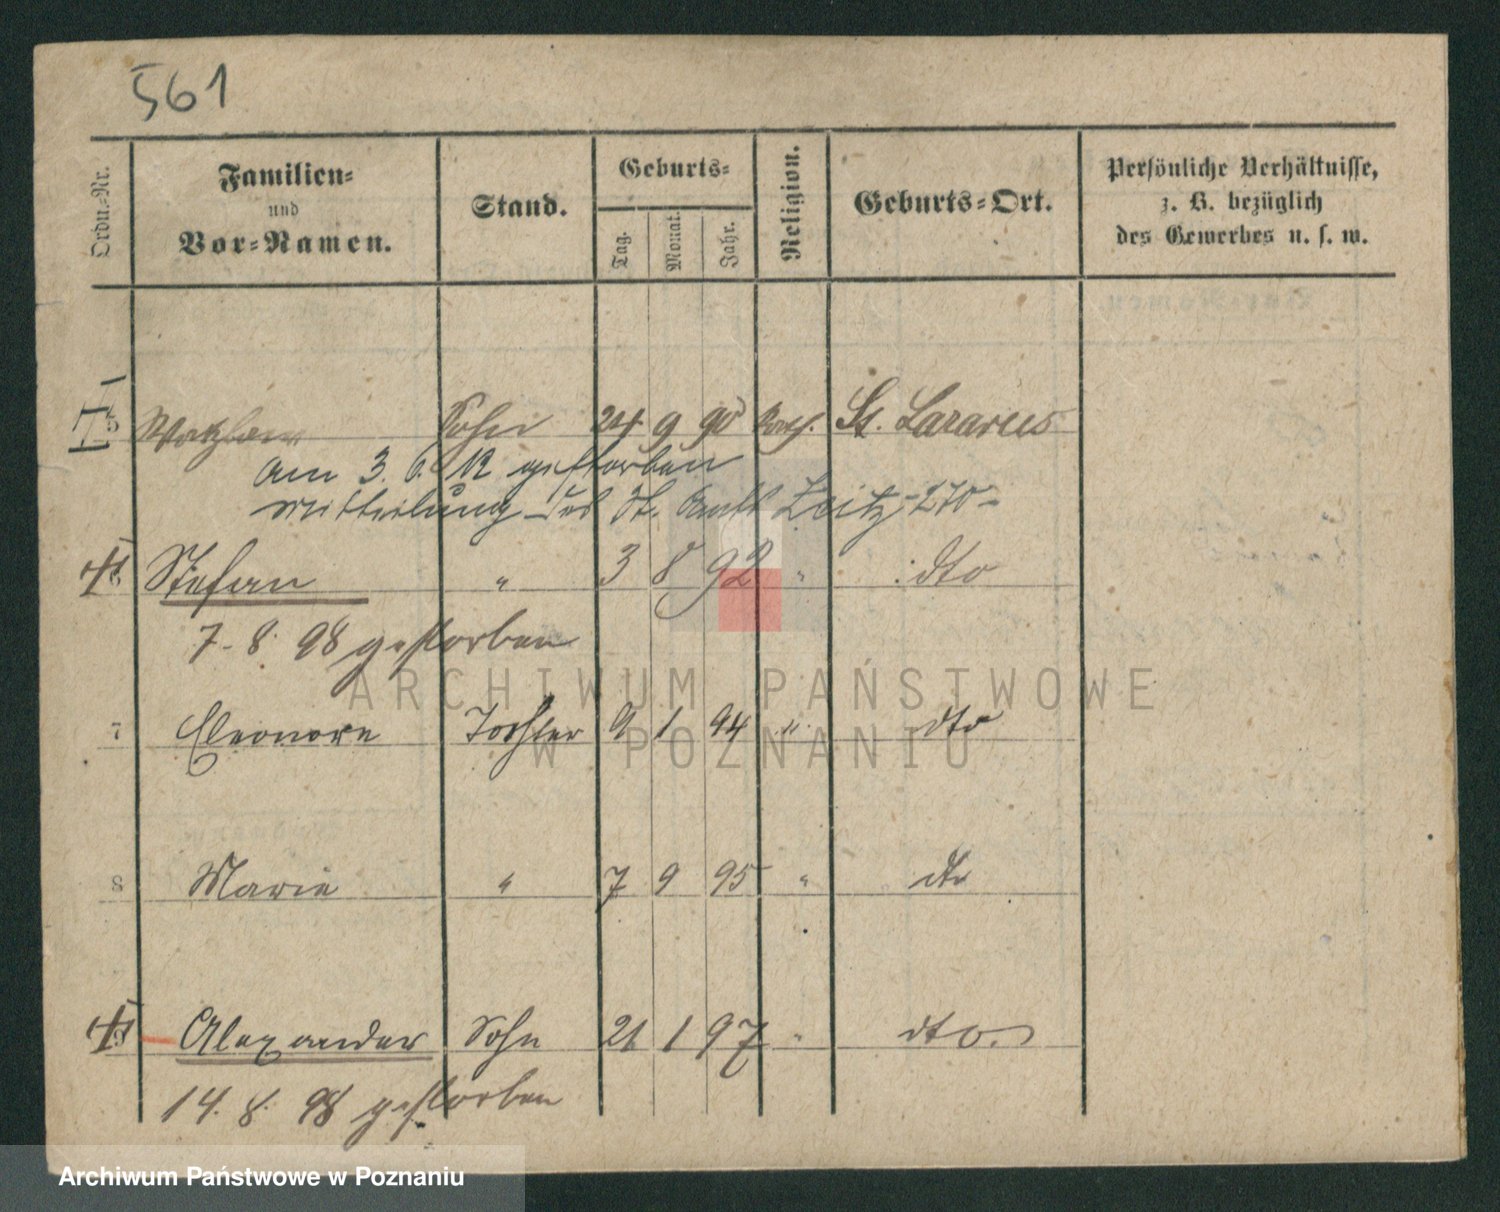 561
Ordn.-Nr.
Familien-
und
Vor-Namen.
Stand.
Geburts-
Tag.
Monat.
Jahr.
Religion.
Geburts-Ort.
Persönliche Verhältnisse,
z. B. bezüglich
des Gewerbes u. s. w.
Sohn 24 9 90 kath. St. Lazarus
am 3. 6. 12 gestorben
Mitteilung des St. Amts Zeitz - 270 -
Stefan " 3 8 92 " dto
7. 8. 98 gestorben
ARCHIWUM PAŃSTWOWE
7 Eleonore Tochter 9 1 94 " dto
W POZNANIU
8 Marie " 7 9 95 " dto
Alexander Sohn 21 1 97 " dto.
14. 8. 98 gestorben
Archiwum Państwowe w Poznaniu